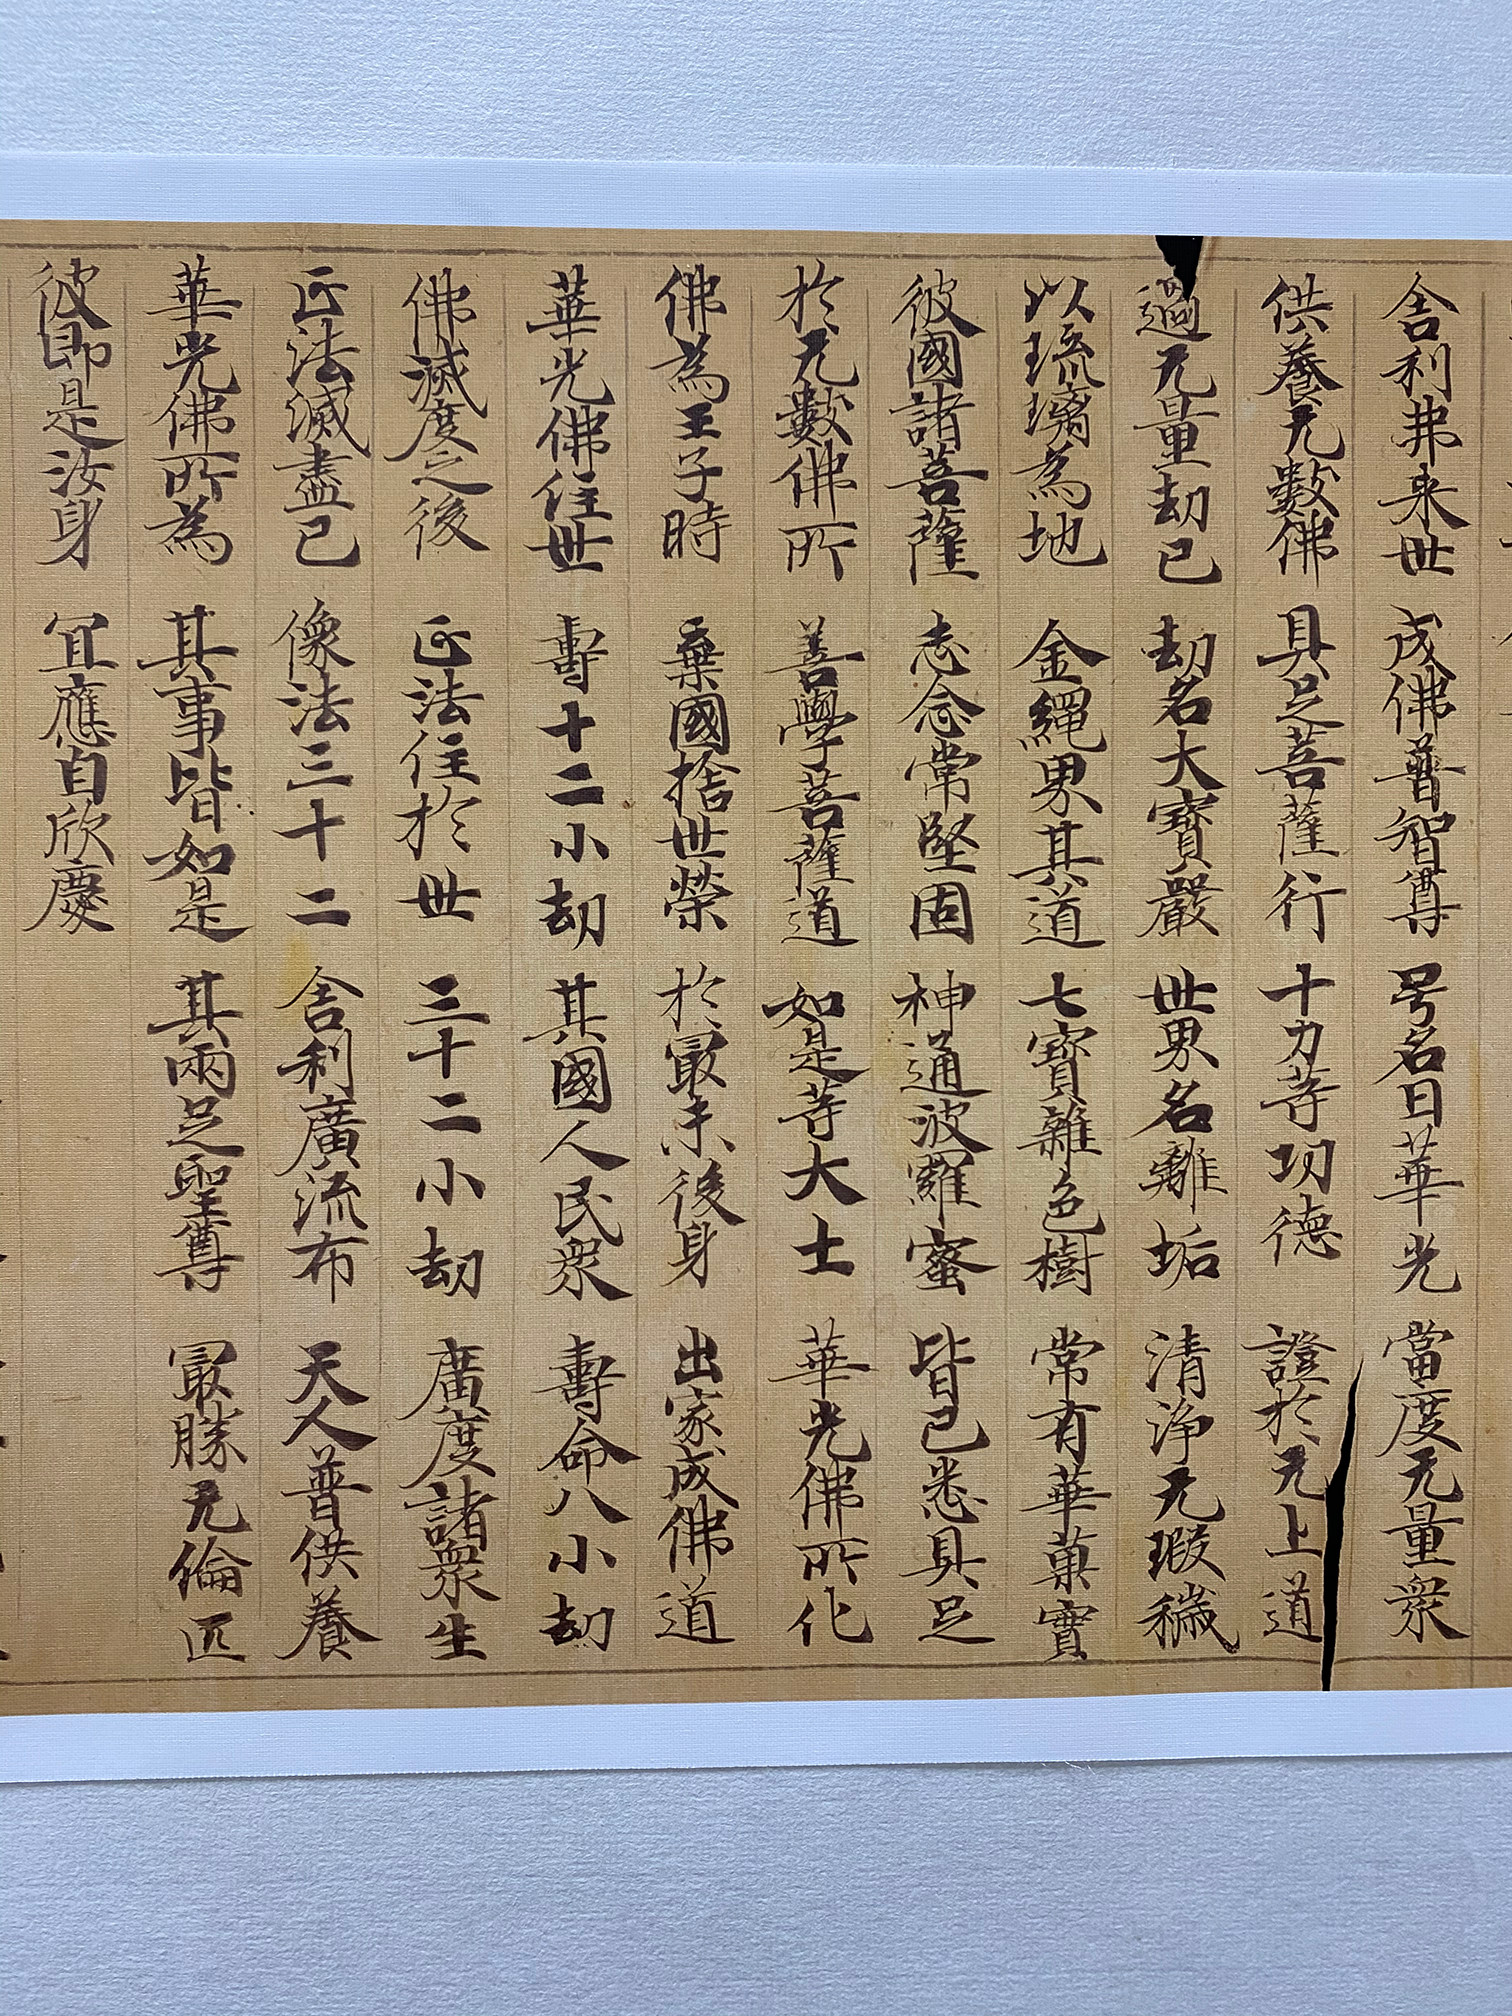 舎利弗来世 成佛普智尊 号名曰華光 當度无量衆
供養无數佛 具足菩薩行 十力等功德 證於无上道
過无量劫已 劫名大寶嚴 世界名離垢 清淨无瑕穢
以琉璃為地 金繩界其道 七寶雜色樹 常有華菓實
彼國諸菩薩 志念常堅固 神通波羅蜜 皆已悉具足
於无數佛所 善學菩薩道 如是等大士 華光佛所化
佛為王子時 棄國捨世榮 於最末後身 出家成佛道
華光佛住世 壽十二小劫 其國人民衆 壽命八小劫
佛滅度之後 正法住於世 三十二小劫 廣度諸衆生
正法滅盡已 像法三十二 舎利廣流布 天人普供養
華光佛所為 其事皆如是 其兩足聖尊 最勝无倫匹
彼即是汝身 宜應自欣慶